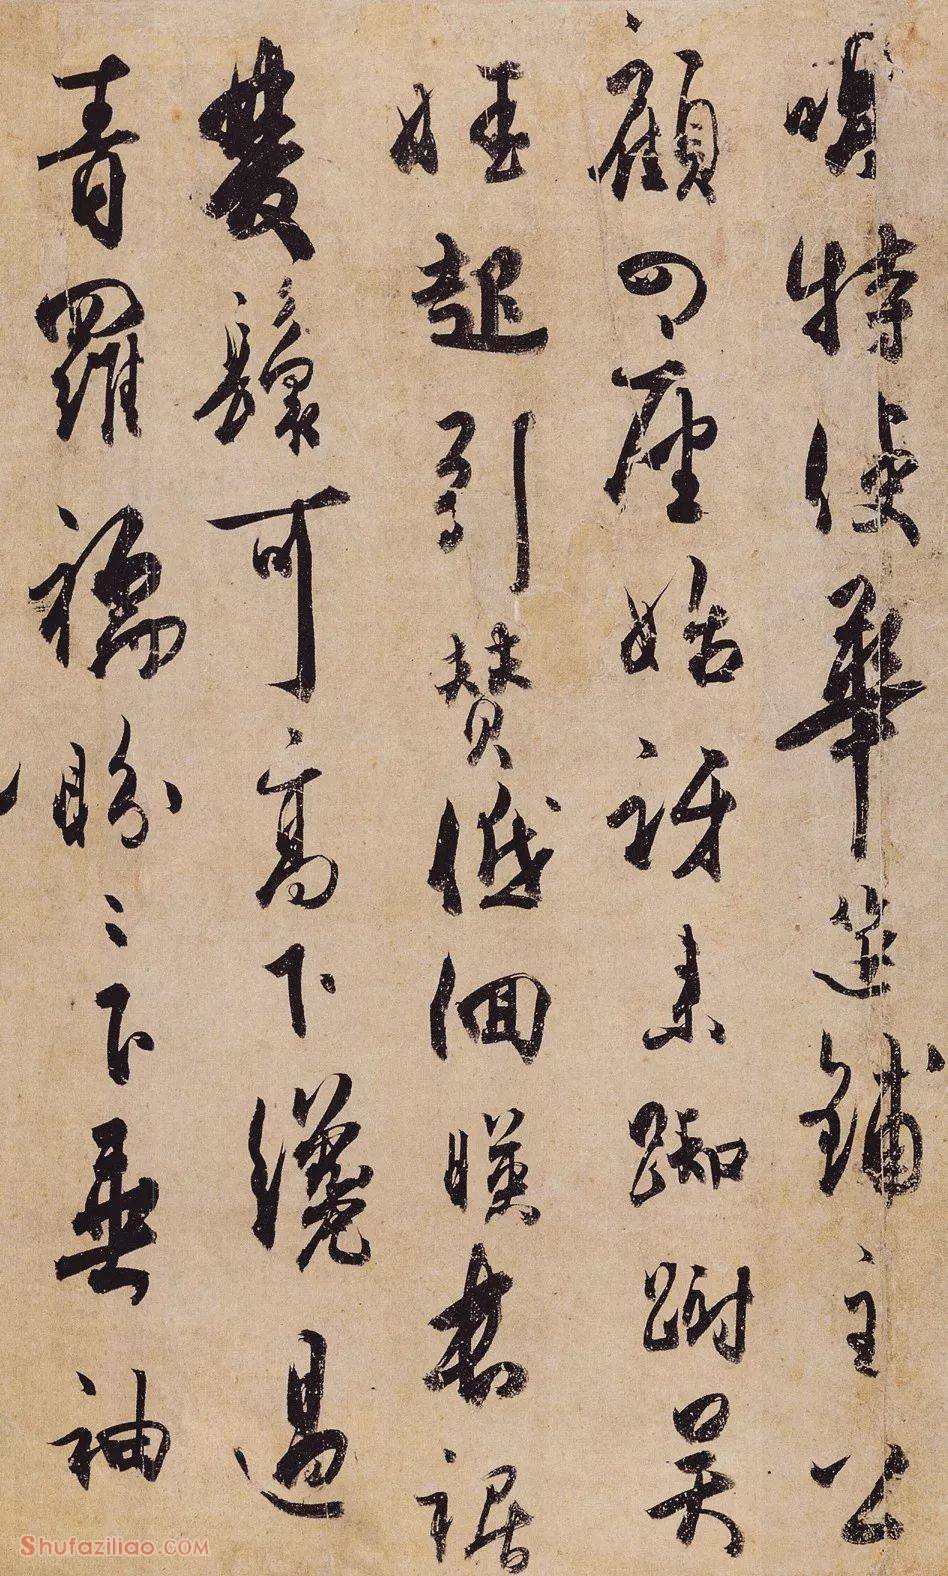 唱特使華筵鋪主公
顧四座始訝來踟躕吳
娃起引贊低佪暎長裾
雙鬟可高下纔過
青羅襦盼〻乍垂袖
Shufaziliao.COM